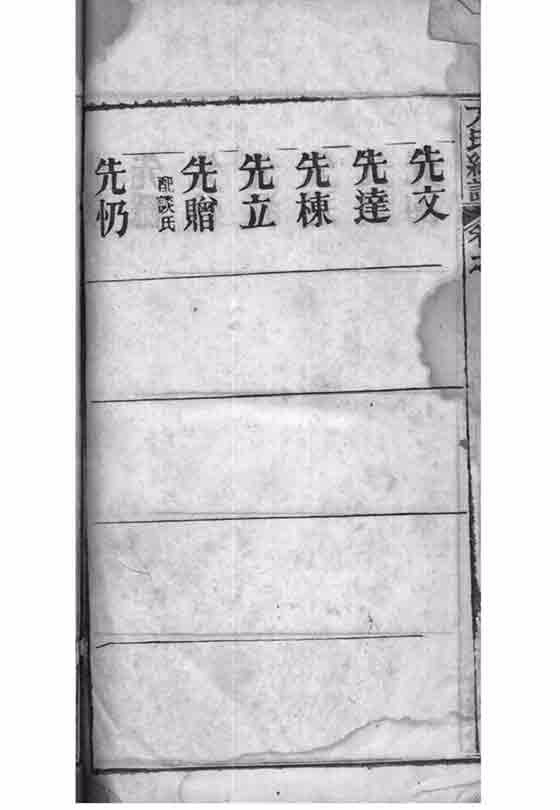 先文
先達
先棟
先立
先贈
配談氏
先仍